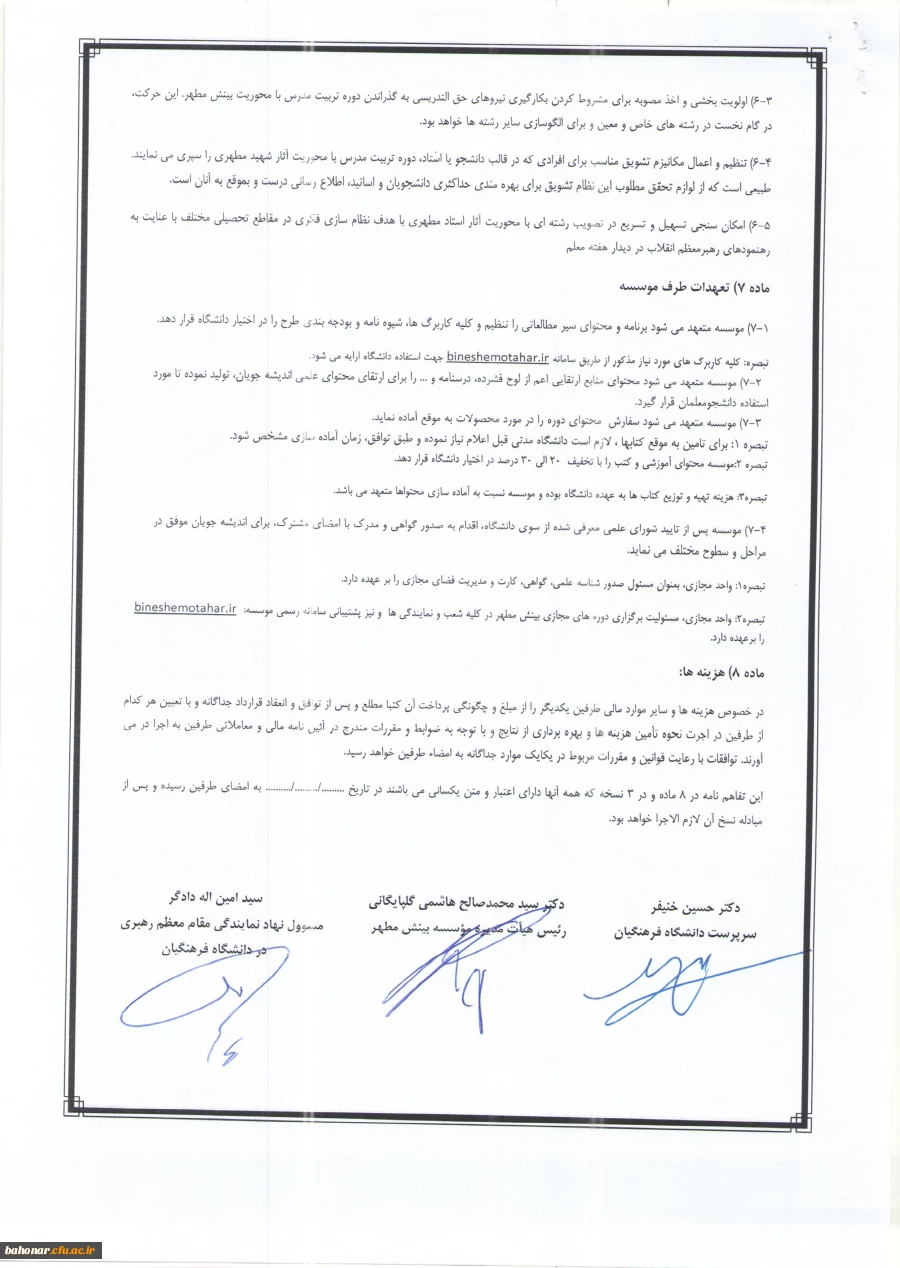 ۶-۳) اولویت بخشی و اخذ مصوبه برای مشروط کردن بکارگیری نیروهای حق التدریسی به گذراندن دوره تربیت مدرس با محوریت بینش مطهر. این حرکت،
در گام نخست در رشته های خاص و معین و برای الگوسازی سایر رشته ها خواهد بود.
۶-۴) تنظیم و اعمال مکانیزم تشویق مناسب برای افرادی که در قالب دانشجو یا استاد، دوره تربیت مدرس با محوریت آثار شهید مطهری را سپری می نمایند.
طبیعی است که از لوازم تحقق مطلوب این نظام تشویق برای بهره مندی حداکثری دانشجویان و اساتید، اطلاع رسانی درست و بموقع به آنان است.
۶-۵) امکان سنجی تسهیل و تسریع در تصویب رشته ای با محوریت آثار استاد مطهری با هدف نظام سازی فکری در مقاطع تحصیلی مختلف با عنایت به
رهنمودهای رهبرمعظم انقلاب در دیدار هفته معلم
ماده ۷) تعهدات طرف موسسه
۷-۱) موسسه متعهد می شود برنامه و محتوای سیر مطالعاتی را تنظیم و کلیه کاربرگ ها، شیوه نامه و بودجه بندی طرح را در اختیار دانشگاه قرار دهد.
تبصره: کلیه کاربرگ های مورد نیاز مذکور از طریق سامانه bineshemotahar.ir جهت استفاده دانشگاه ارایه می شود.
۷-۲) موسسه متعهد می شود محتوای منابع ارتقایی اعم از لوح فشرده، درسنامه و ... را برای ارتقای محتوای علمی اندیشه جویان، تولید نموده تا مورد
استفاده دانشجومعلمان قرار گیرد.
۷-۳) موسسه متعهد می شود سفارش محتوای دوره را در مورد محصولات به موقع آماده نماید.
تبصره ۱: برای تامین به موقع کتابها ، لازم است دانشگاه مدتی قبل اعلام نیاز نموده و طبق توافق، زمان آماده سازی مشخص شود.
تبصره ۲:موسسه محتوای آموزشی و کتب را با تخفیف ۲۰ الی ۳۰ درصد در اختیار دانشگاه قرار دهد.
تبصره۳: هزینه تهیه و توزیع کتاب ها به عهده دانشگاه بوده و موسسه نسبت به آماده سازی محتواها متعهد می باشد.
۷-۴) موسسه پس از تایید شورای علمی معرفی شده از سوی دانشگاه، اقدام به صدور گواهی و مدرک با امضای مشترک، برای اندیشه جویان موفق در
مراحل و سطوح مختلف می نماید.
تبصره۱: واحد مجازی، بعنوان مسئول صدور شناسه علمی، گواهی، کارت و مدیریت فضای مجازی را بر عهده دارد.
تبصره۲: واحد مجازی، مسئولیت برگزاری دوره های مجازی بینش مطهر در کلیه شعب و نمایندگی ها و نیز پشتیبانی سامانه رسمی موسسه: bineshemotahar.ir
را برعهده دارد.
ماده ۸) هزینه ها:
در خصوص هزینه ها و سایر موارد مالی طرفین یکدیگر را از مبلغ و چگونگی پرداخت آن کتبا مطلع و پس از توافق و انعقاد قرارداد جداگانه و با تعیین هر کدام
از طرفین در اجرت نحوه تأمین هزینه ها و بهره برداری از نتایج و با توجه به ضوابط و مقررات مندرج در آئین نامه مالی و معاملاتی طرفین به اجرا در می
آورند. توافقات با رعایت قوانین و مقررات مربوط در یکایک موارد جداگانه به امضاء طرفین خواهد رسید.
این تفاهم نامه در ۸ ماده و در ۳ نسخه که همه آنها دارای اعتبار و متن یکسانی می باشند در تاریخ ........./......../.......... به امضای طرفین رسیده و پس از
مبادله نسخ آن لازم الاجرا خواهد بود.
دکتر حسین خنیفر
سرپرست دانشگاه فرهنگیان
دکتر سید محمدصالح هاشمی گلپایگانی
رئیس هیأت مدیره مؤسسه بینش مطهر
سید امین اله دادگر
مسوول نهاد نمایندگی مقام معظم رهبری
در دانشگاه فرهنگیان
bahonar.cfu.ac.ir